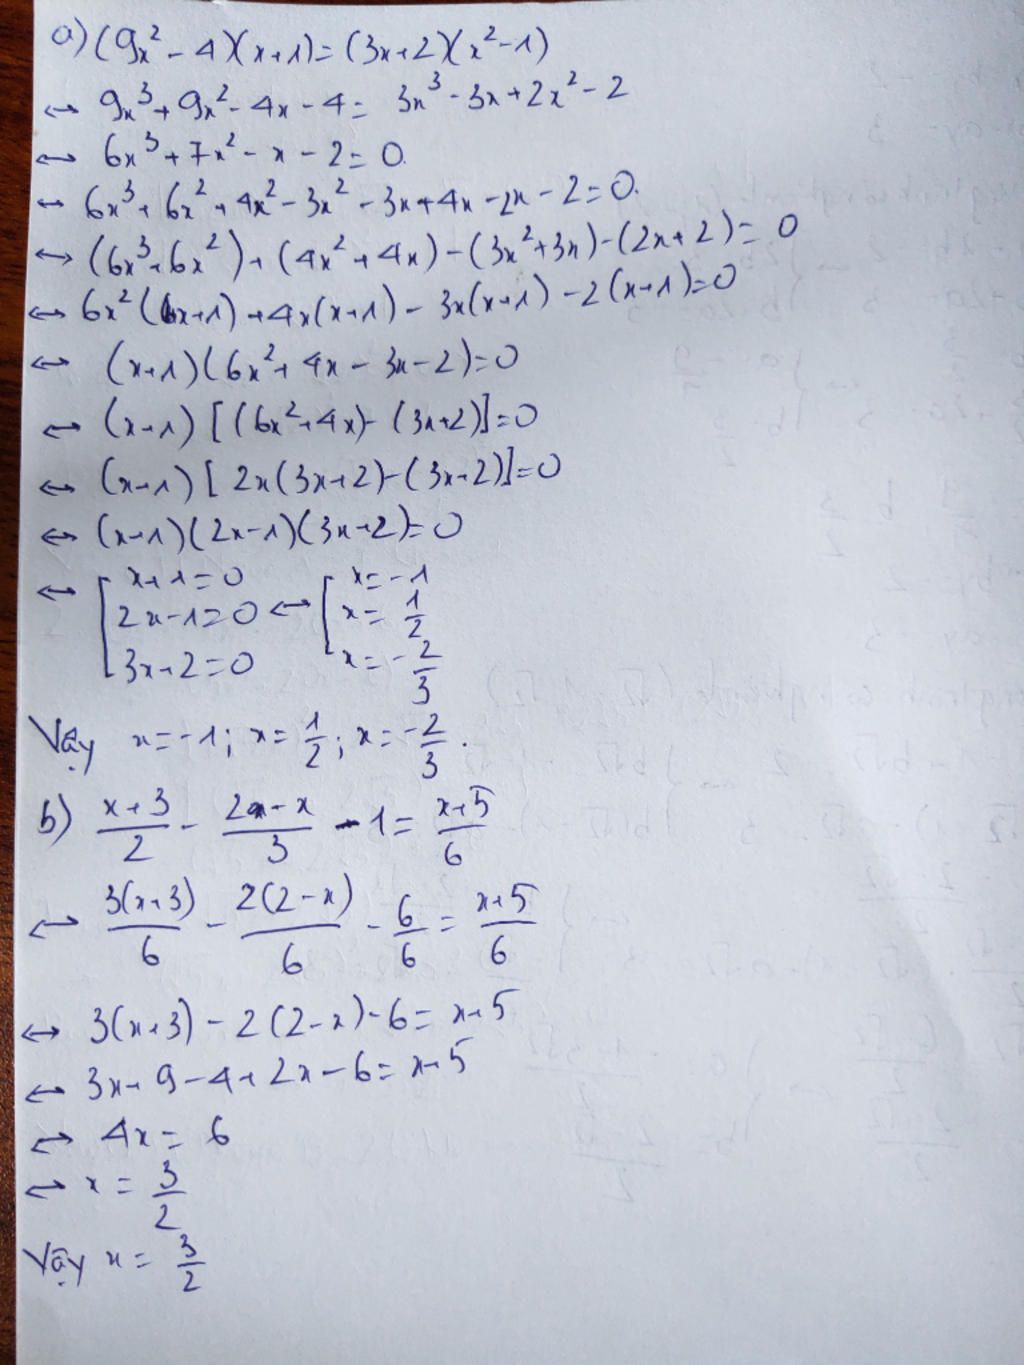 a) (9x² - 4)(x+1) = (3x+2)(x² - 1)
↔ 9x³ + 9x² - 4x - 4 = 3x³ - 3x + 2x² - 2
↔ 6x³ + 7x² - x - 2 = 0.
↔ 6x³ + 6x² + 4x² - 3x² - 3x + 4x - 2x - 2 = 0.
↔ (6x³ + 6x²) + (4x² + 4x) - (3x² + 3x) - (2x + 2) = 0
↔ 6x² (x+1) + 4x(x+1) - 3x(x+1) - 2(x+1) = 0
↔ (x+1)(6x² + 4x - 3x - 2) = 0
↔ (x+1) [(6x² + 4x) - (3x+2)] = 0
↔ (x+1) [2x(3x+2) - (3x+2)] = 0
↔ (x+1)(2x-1)(3x+2) = 0
↔ [ x+1 = 0 ↔ [ x = -1
2x - 1 = 0 x = 1/2
3x + 2 = 0 x = -2/3
Vậy x = -1; x = 1/2; x = -2/3.
b) (x+3)/2 - (2-x)/3 - 1 = (x+5)/6
↔ 3(x+3)/6 - 2(2-x)/6 - 6/6 = (x+5)/6
↔ 3(x+3) - 2(2-x) - 6 = x+5
↔ 3x + 9 - 4 + 2x - 6 = x+5
↔ 4x = 6
↔ x = 3/2
Vậy x = 3/2